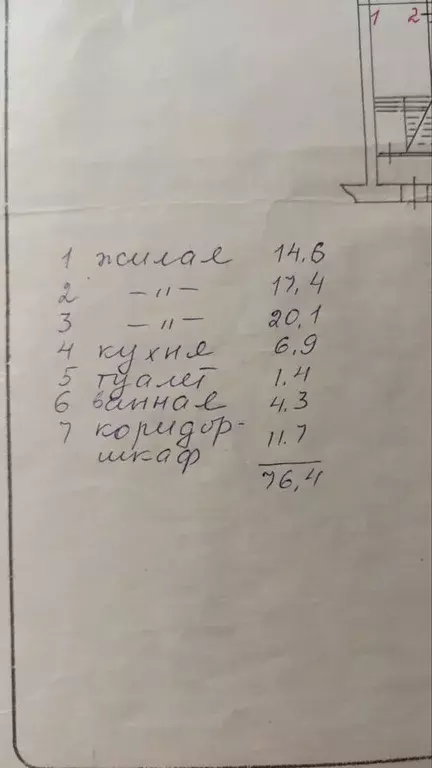 1 2
1 жилая 14.6
2 -"- 17,4
3 -"- 20,1
4 кухня 6,9
5 туалет 1.4
6 ванная 4.3
7 коридор- 11.7
шкаф
76,4